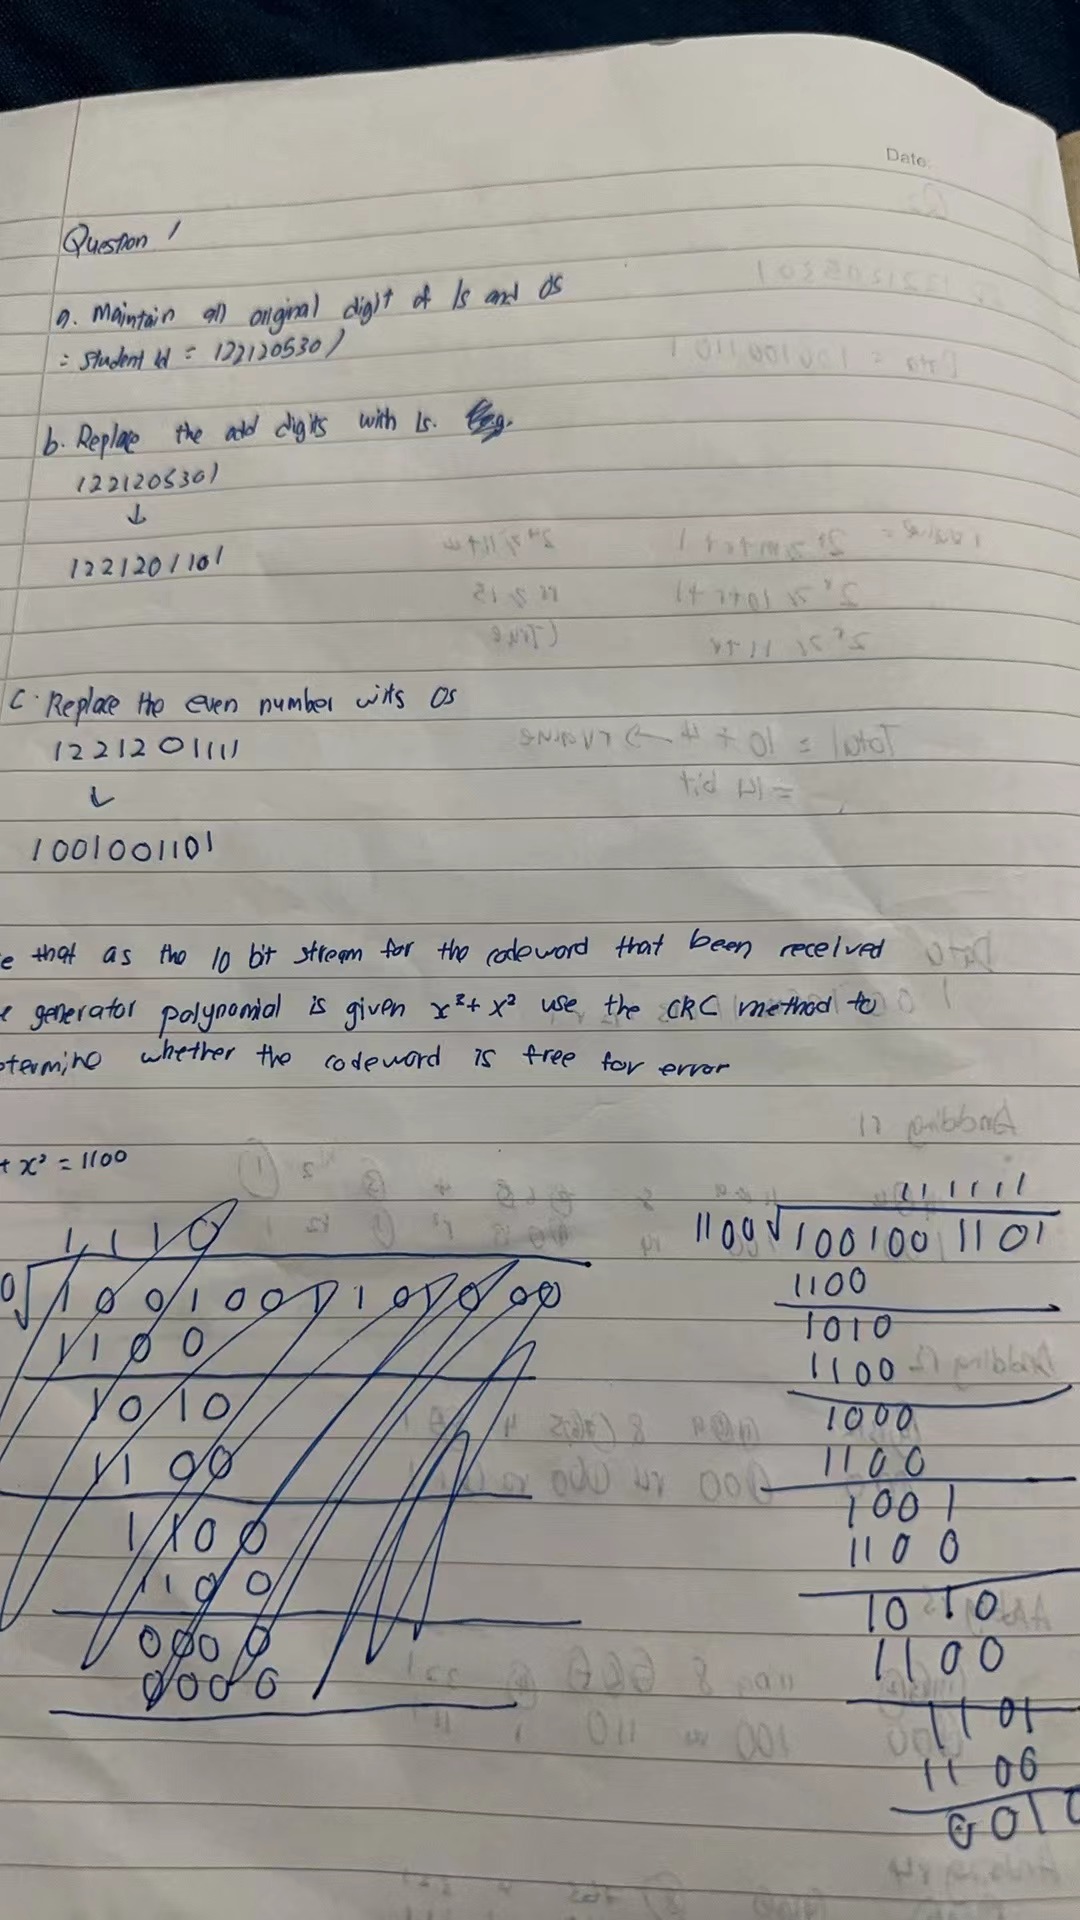 Date:
Question 1
a. Maintain all original digit of 1s and 0s
= Student Id = 1221205301
b. Replace the odd digits with 1s.
1221205301
↓
1221201101
C. Replace the even number wits 0s
1221201111
↓
1001001101
e that as the 10 bit stream for the codeword that been received
e generator polynomial is given x³+ x² use the CRC method to
etermine whether the codeword is free for error
+ x² = 1100
1110
0√1001001101000
1100
1010
1100
1100
1100
0000
0000
111111
1100√1001001101
1100
1010
1100
1000
1100
1001
1100
1010
1100
1101
1100
0010